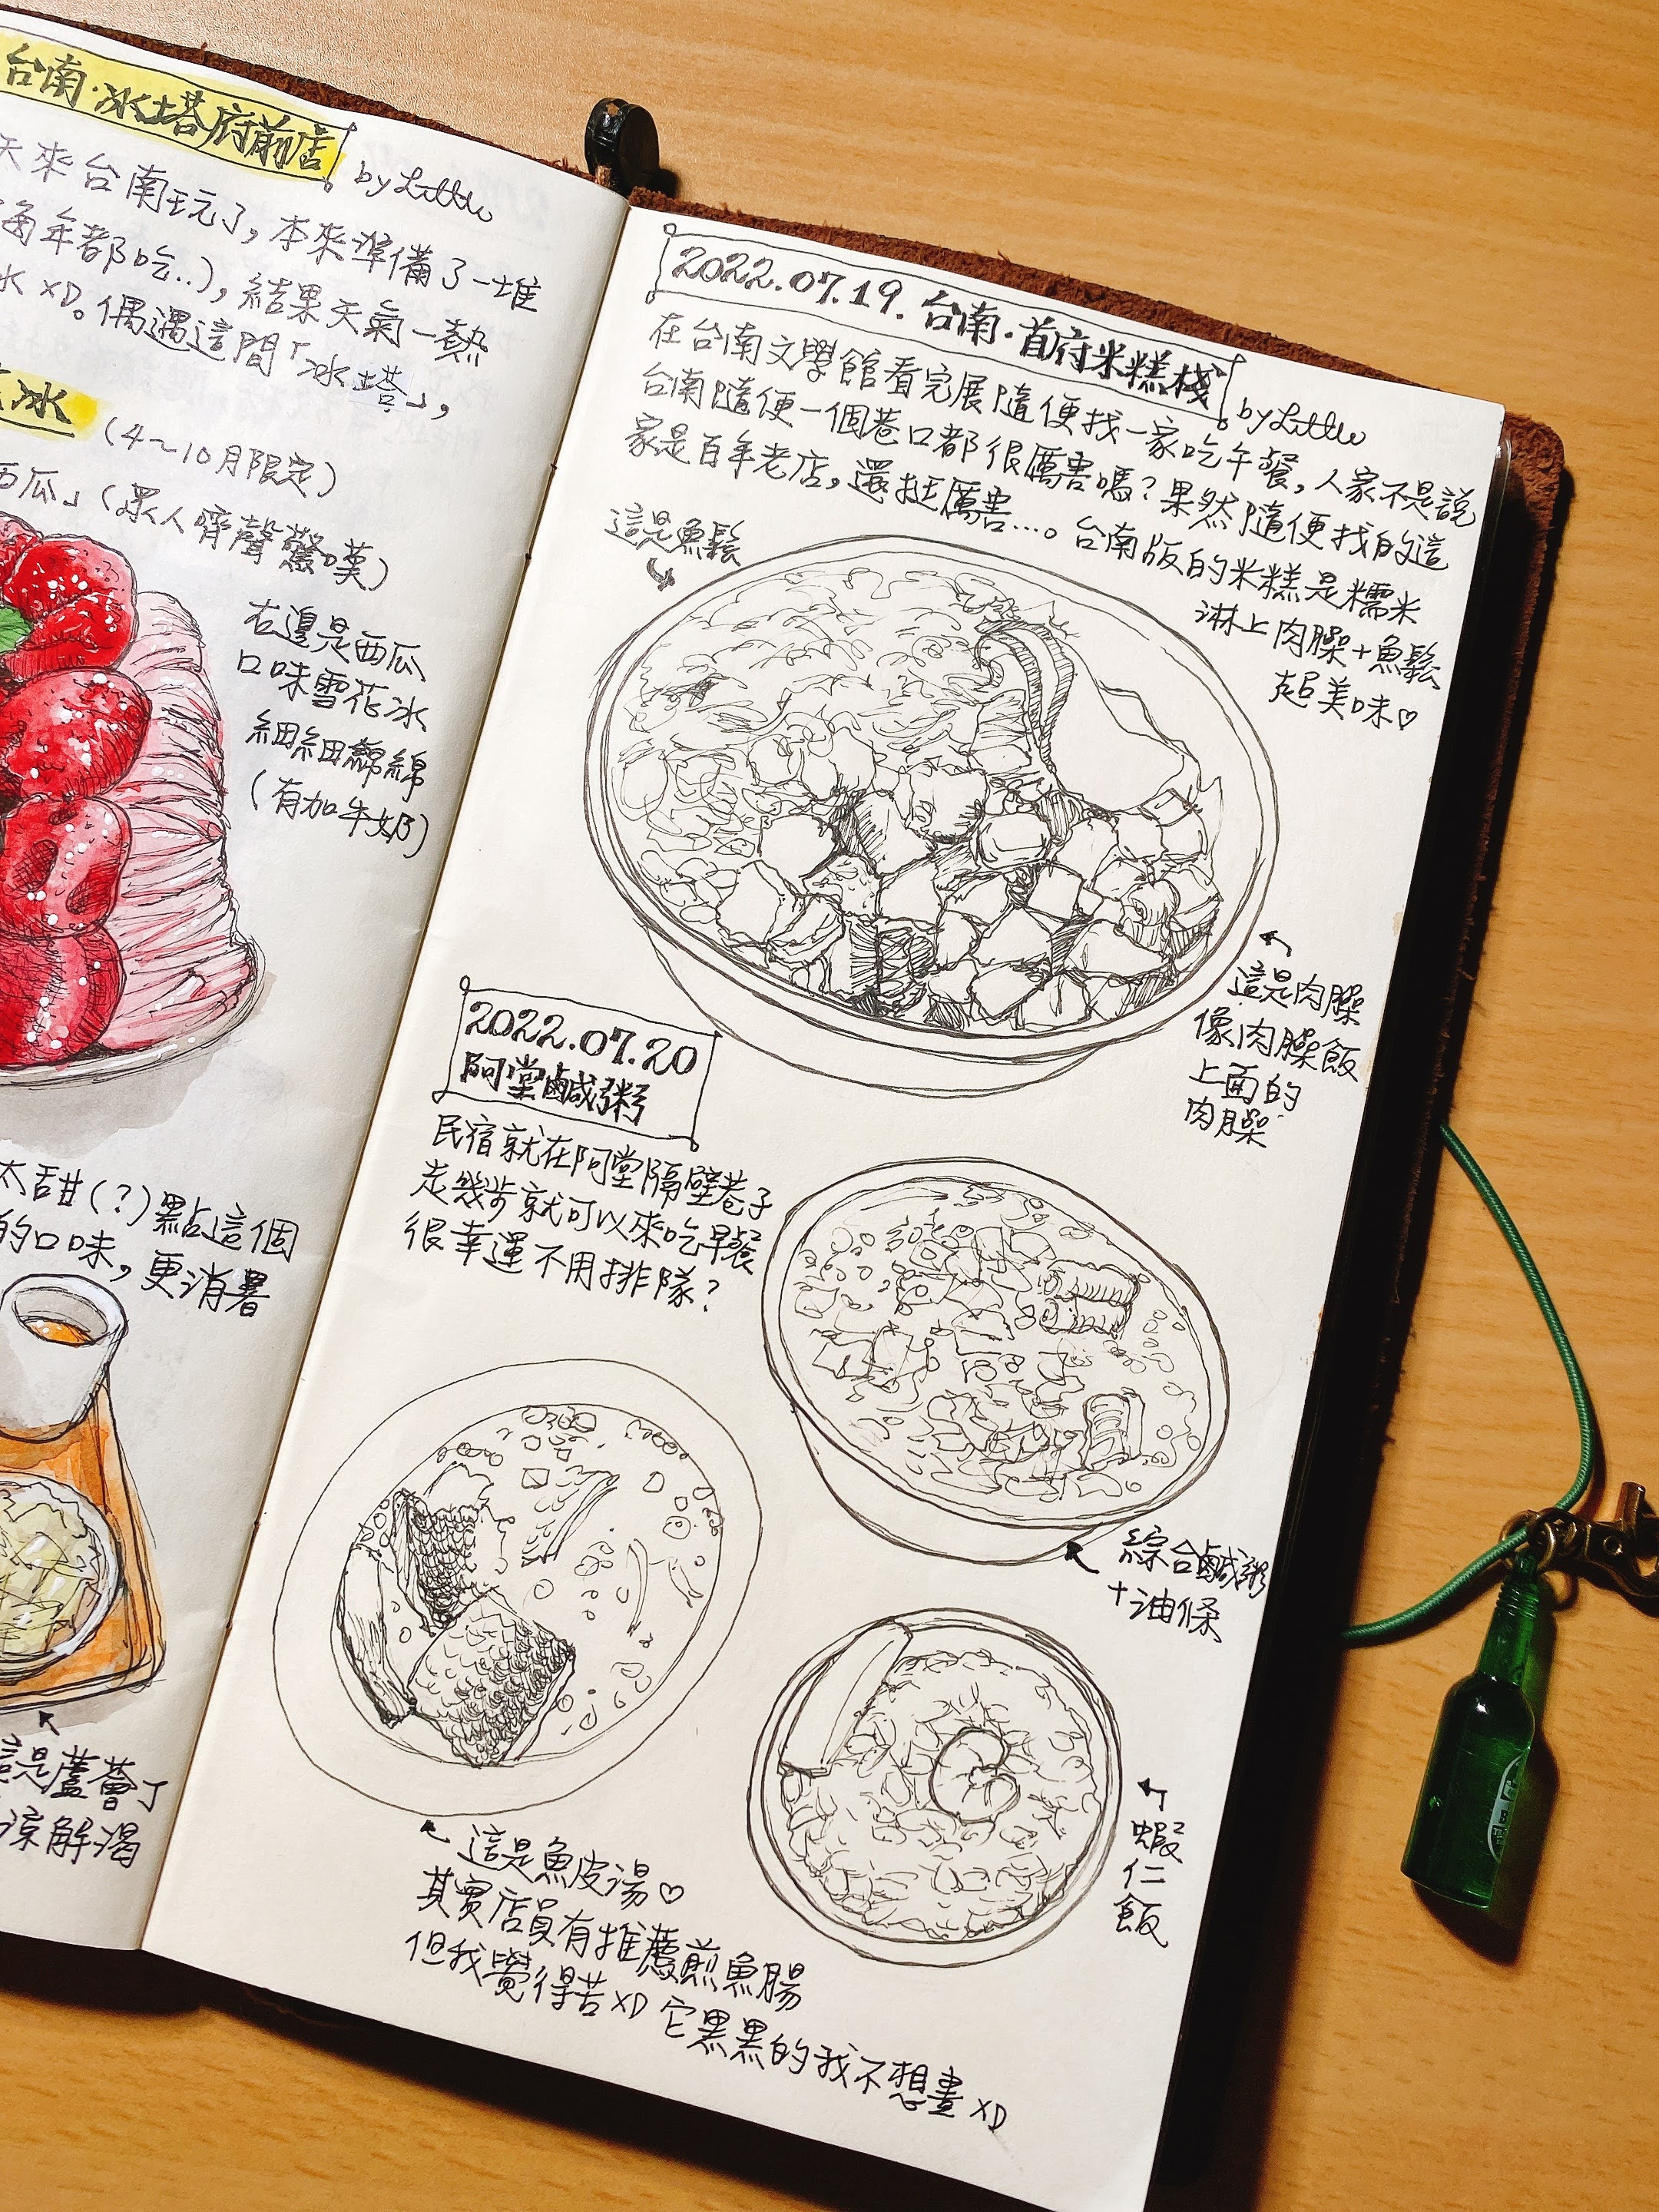 台南·冰塔府前店
by Little
天來台南玩了，本來準備了一堆
每年都吃..)，結果天氣一熱
冰XD。偶遇這間「冰塔」，
冰
(4~10月限定)
西瓜」(眾人齊聲驚嘆)
右邊是西瓜
口味雪花冰
細細綿綿
(有加牛奶)
太甜(?)點這個
的口味，更消暑
這是蘆薈丁
涼解渴
2022.07.19.台南·首府米糕棧
by Little
在台南文學館看完展隨便找一家吃午餐，人家不是說
台南隨便一個巷口都很厲害嗎？果然隨便找的這
家是百年老店，還挺厲害...。台南版的米糕是糯米
淋上肉臊+魚鬆
超美味♡
這是魚鬆
這是肉臊
像肉臊飯
上面的
肉臊
2022.07.20
阿堂鹹粥
民宿就在阿堂隔壁巷子
走幾步就可以來吃早餐
很幸運不用排隊？
綜合鹹粥
+油條
蝦
仁
飯
這是魚皮湯♡
其實店員有推薦煎魚腸
但我覺得苦XD它黑黑的我不想畫XD